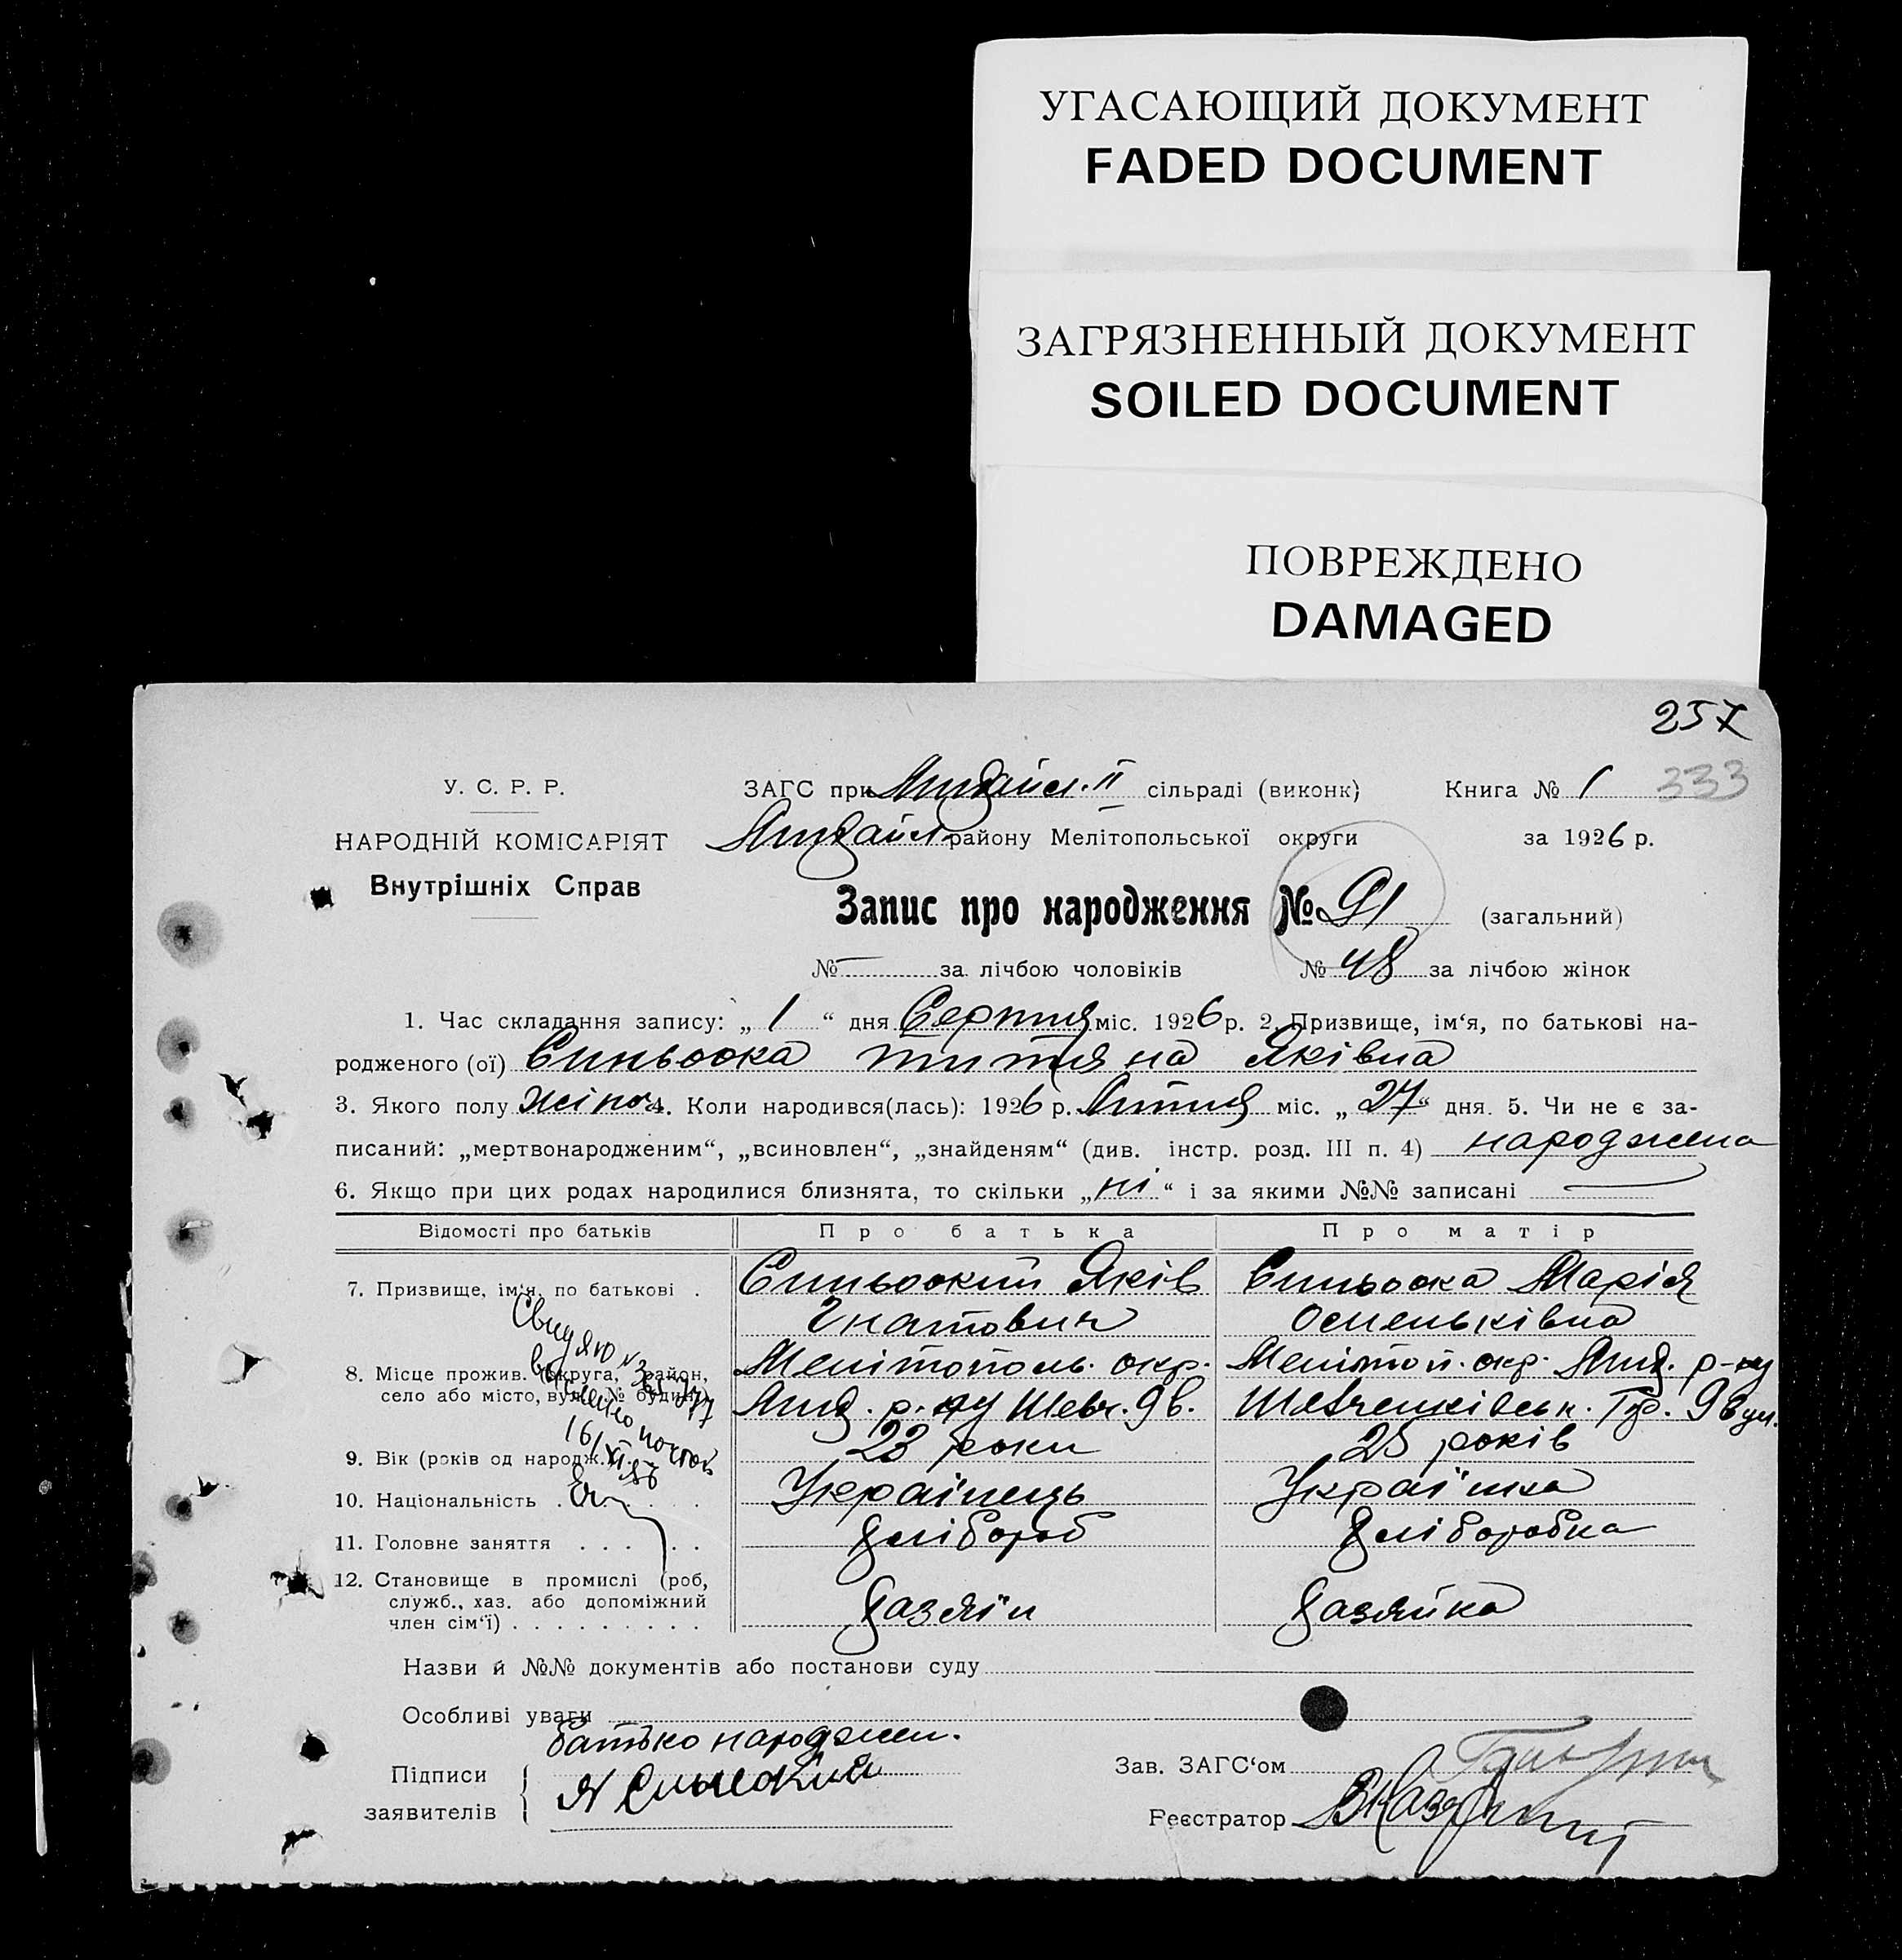 УГАСАЮЩИЙ ДОКУМЕНТ
FADED DOCUMENT
ЗАГРЯЗНЕННЫЙ ДОКУМЕНТ
SOILED DOCUMENT
ПОВРЕЖДЕНО
DAMAGED
257
У. С. Р. Р. ЗАГС при II сільраді (виконк) Книга № 1 333
НАРОДНІЙ КОМІСАРІЯТ району Мелітопольської округи за 1926 р.
Внутрішніх Справ
Запис про народження № 91 (загальний)
№ — за лічбою чоловіків № 48 за лічбою жінок
1. Час складання запису: „ 1 “ дня Серпня міс. 1926 р. 2. Призвище, ім‘я, по батькові на-
родженого (ої) Синьоока Титяна Яківна
3. Якого полу жіноч. 4. Коли народився(лась): 1926 р. Липня міс. „ 27 “ дня. 5. Чи не є за-
писаний: „мертвонародженим“, „всиновлен“, „знайденям“ (див. інстр. розд. III п. 4) народжена
6. Якщо при цих родах народилися близнята, то скільки „ ні “ і за якими №№ записані —
Відомості про батьків Про батька Про матір
7. Призвище, ім‘я, по батькові . Синьоокий Яків Синьоока Марія
Гнатович Оменьківна
8. Місце прожив. (округа, район, Мелітополь. окр. Меліто п. окр. Якид. р-ну
село або місто, вулиц. № будин.) р. ну Шевч. 9 в. Шевченківськ. 9 вул.
9. Вік (років од народж.) 23 роки 25 років
10. Національність . . . . Українець Українка
11. Головне заняття . . . . . Хлібороб Хліборобка
12. Становище в промислі (роб,
служб., хаз. або допоміжний Хазяїн Хазяйка
член сім‘ї) . . . . . . . . .
Назви й №№ документів або постанови суду
Особливі уваги
батько народжен.
Підписи Зав. ЗАГС‘ом
заявителів Реєстратор